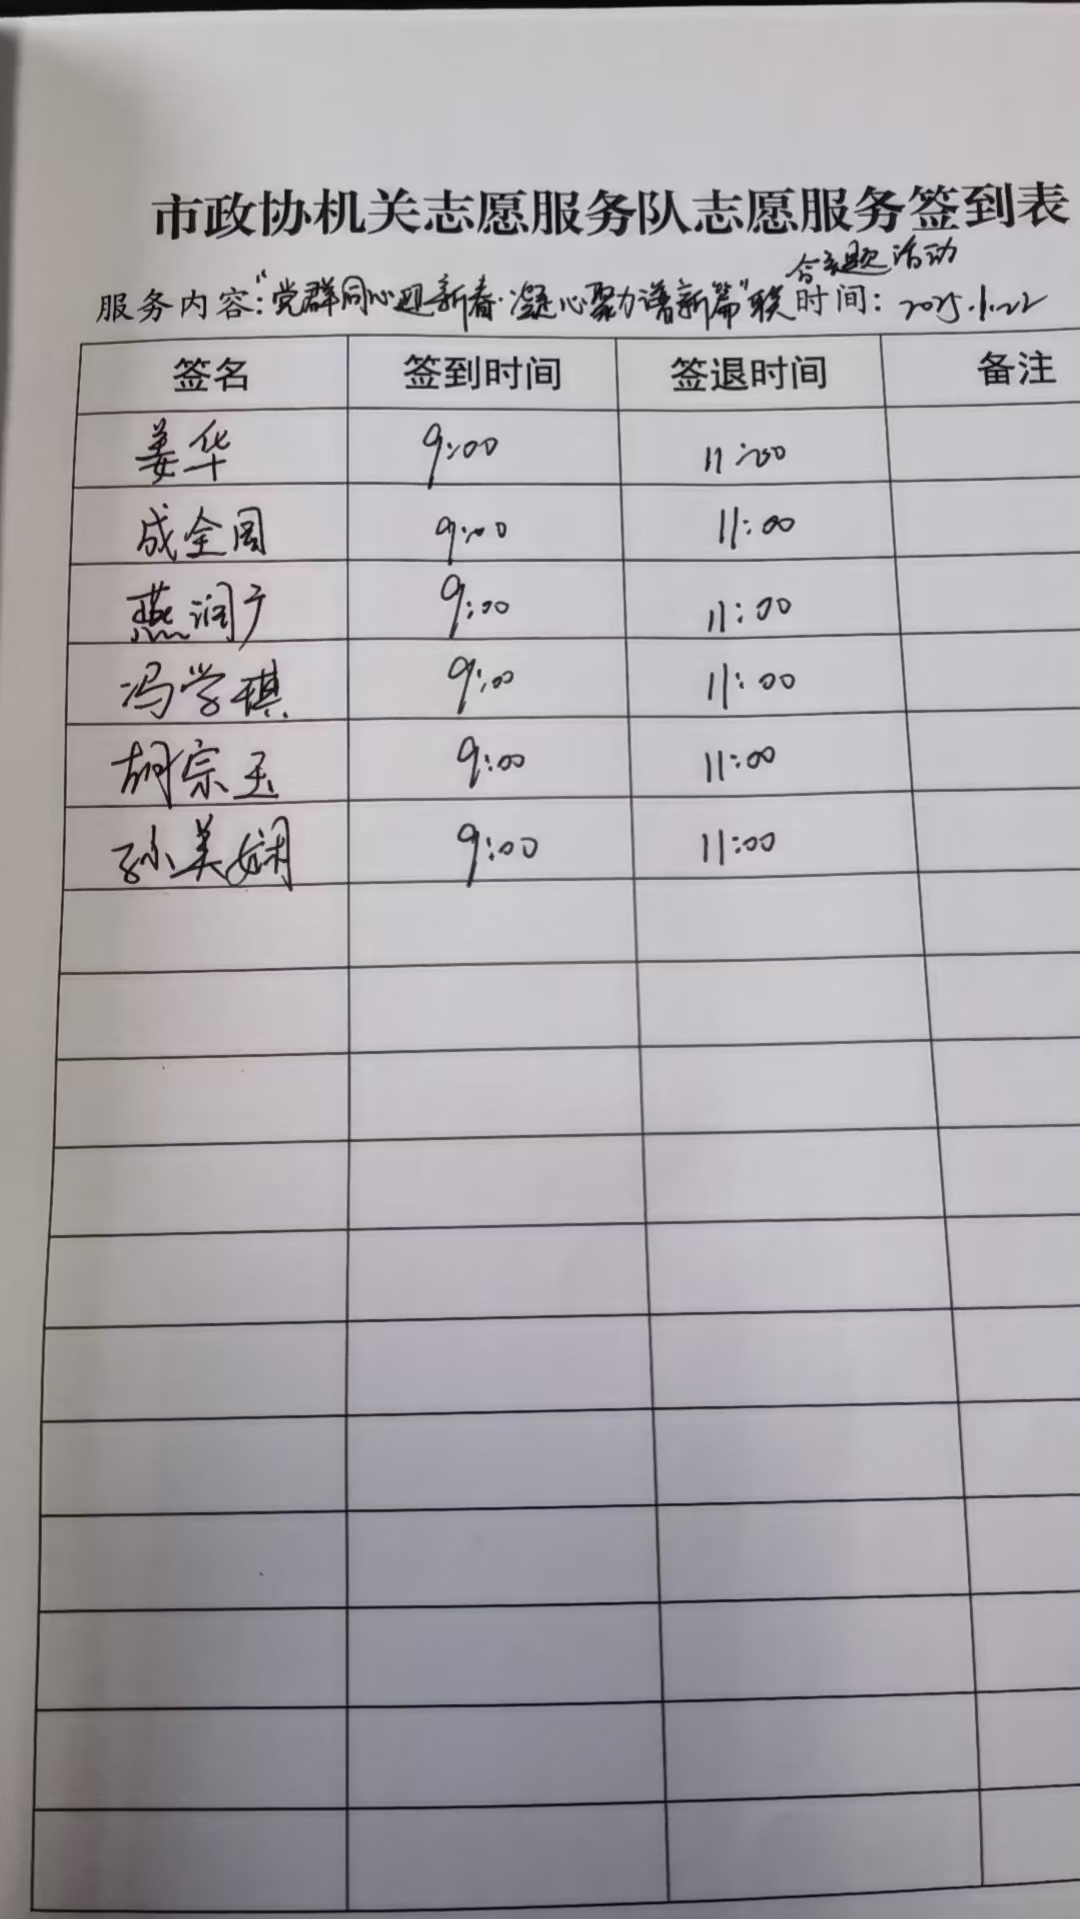 市政协机关志愿服务队志愿服务签到表
服务内容：“党群同心迎新春·凝心聚力谱新篇”联合主题活动 时间：2025.1.22
签名 签到时间 签退时间 备注
姜华 9:00 11:00
成全周 9:00 11:00
燕润广 9:00 11:00
冯学琪 9:00 11:00
胡宗玉 9:00 11:00
孙美娴 9:00 11:00